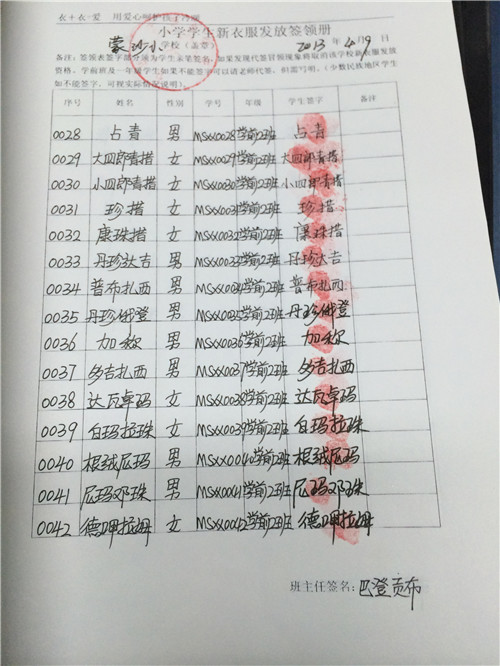 衣+衣=爱 用爱心呵护孩子
小学学生新衣服发放签领册
蒙沙小学校(盖章) 2013年4月19日
备注:签领表签字部分须为学生亲笔签名,如果发现代签冒领现象将取消该学校新衣服发放
资格。学前班及一年级学生如果不能签字可以请老师代签,但需写明。(少数民族地区学生
如不能签字,可视实际情况说明)
序号 姓名 性别 学号 年级 学生签字 备注
0028 占青 男 MSXX0028 学前2班 占青
0029 大四郎青措 女 MSXX0029 学前2班 大四郎青措
0030 小四郎青措 女 MSXX0030 学前2班 小四郎青措
0031 珍措 女 MSXX0031 学前2班 珍措
0032 康珠措 女 MSXX0032 学前2班 康珠措
0033 丹珍达吉 男 MSXX0033 学前2班 丹珍达吉
0034 普布扎西 男 MSXX0034 学前2班 普布扎西
0035 丹珍俄登 男 MSXX0035 学前2班 丹珍俄登
0036 加称 男 MSXX0036 学前2班 加称
0037 多吉扎西 男 MSXX0037 学前2班 多吉扎西
0038 达瓦卓玛 女 MSXX0038 学前2班 达瓦卓玛
0039 白玛拉珠 女 MSXX0039 学前2班 白玛拉珠
0040 根绒尼玛 男 MSXX0040 学前2班 根绒尼玛
0041 尼玛邓珠 男 MSXX0041 学前2班 尼玛邓珠
0042 德呷拉姆 女 MSXX0042 学前2班 德呷拉姆
班主任签名:巴登贡布